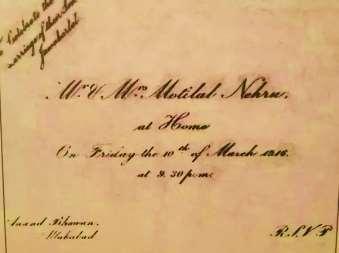 To Celebrate the
marriage of their son
Jawaharlal
Mr. & Mrs. Motilal Nehru.
at Home
On Friday the 10th of March 1916.
at 9.30 p.m.
Anand Bhawan,
Allahabad
R.S.V.P